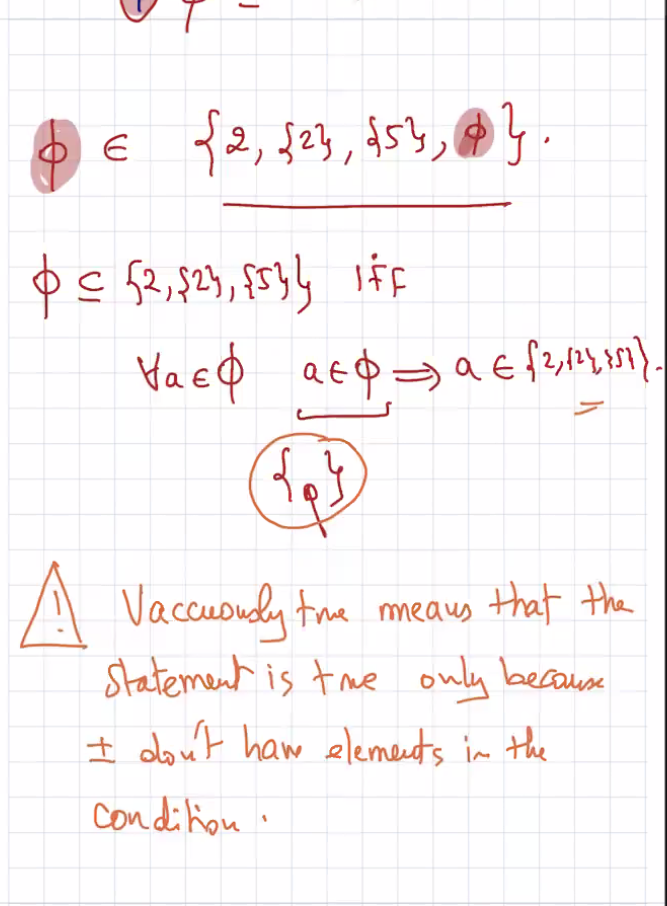 ϕ ∈ {2, {2}, {5}, ϕ}.
ϕ ⊆ {2, {2}, {5}} iff
∀a ∈ ϕ a ∈ ϕ ⟹ a ∈ {2, {2}, {5}}.
{ϕ}
! Vaccuously true means that the
statement is true only because
I don't have elements in the
condition.